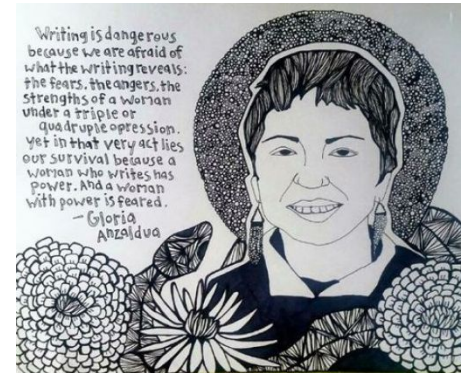 Writing is dangerous
because we are afraid of
what the writing reveals:
the fears, the angers, the
strengths of a woman
under a triple or
quadruple opression.
Yet in that very act lies
our survival because a
woman who writes has
power. And a woman
with power is feared.
- Gloria
Anzaldua